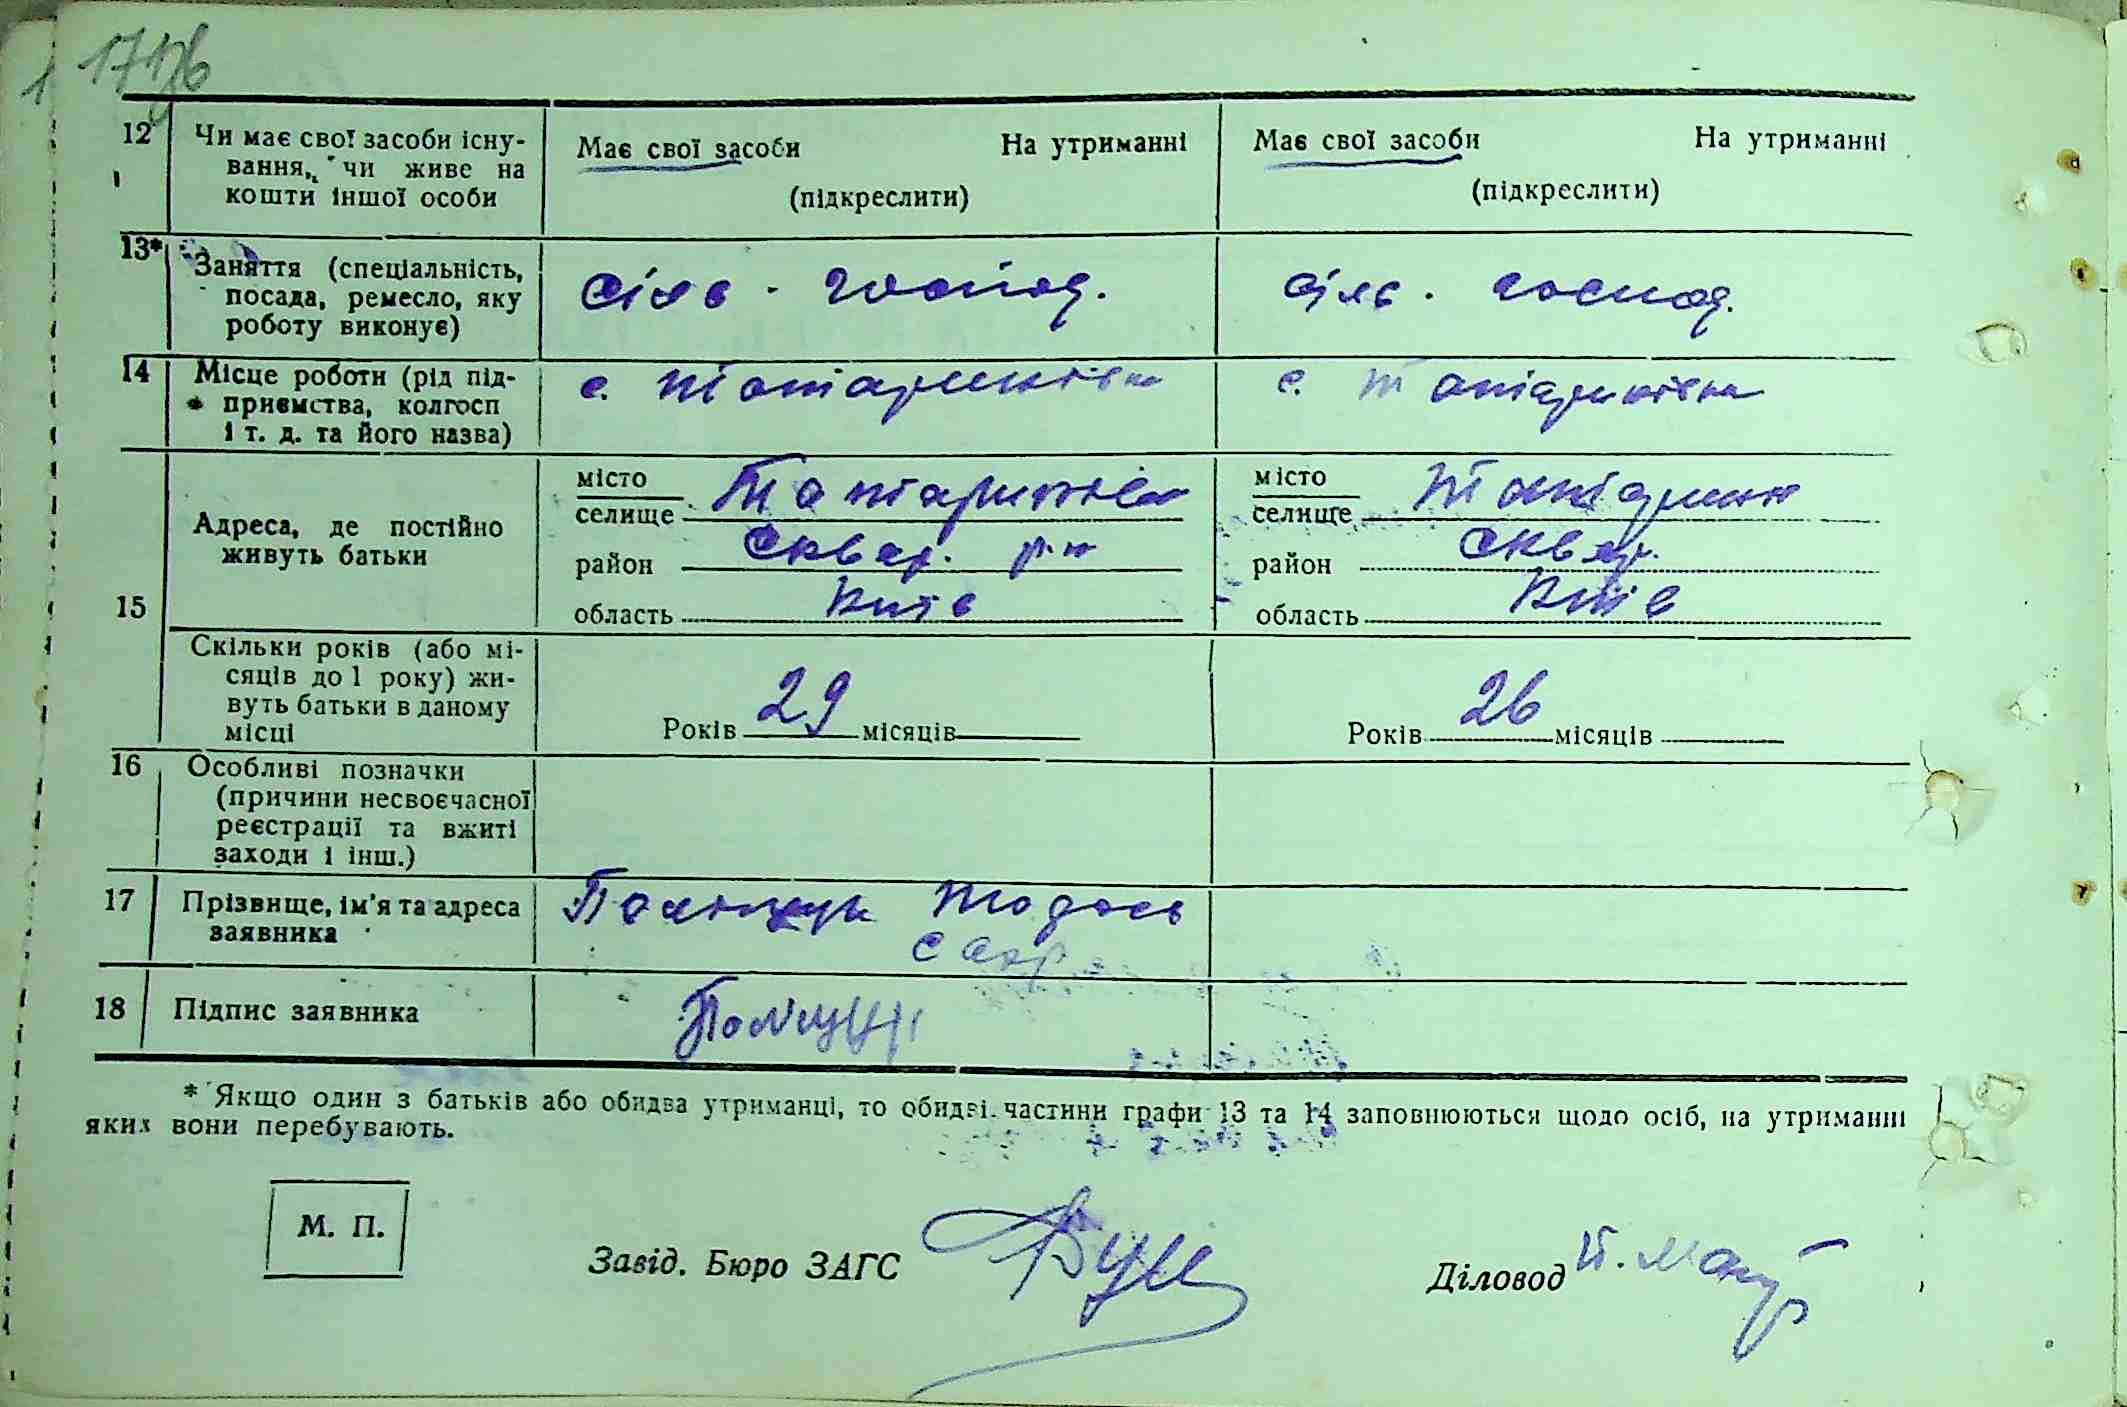 12 Чи має свої засоби існу-
вання, чи живе на
кошти іншої особи
Має свої засоби На утриманні
(підкреслити)
Має свої засоби На утриманні
(підкреслити)
13* Заняття (спеціальність,
посада, ремесло, яку
роботу виконує)
сіль. господ.
сіль. господ.
14 Місце роботи (рід під-
приємства, колгосп
і т. д. та його назва)
с. Татаринівка
с. Татаринівка
15 Адреса, де постійно
живуть батьки
місто
селище Татаринівка
район Сквир. р-н
область Київ
місто
селище
район Сквир.
область Київ
Скільки років (або мі-
сяців до 1 року) жи-
вуть батьки в даному
місці
Років 29 місяців
Років 26 місяців
16 Особливі позначки
(причини несвоєчасної
реєстрації та вжиті
заходи і інш.)
17 Прізвище, ім'я та адреса
заявника
Поліщук Тодось
18 Підпис заявника
Поліщук
* Якщо один з батьків або обидва утриманці, то обидві частини графи 13 та 14 заповнюються щодо осіб, на утриманні
яких вони перебувають.
М. П.
Завід. Бюро ЗАГС
Діловод